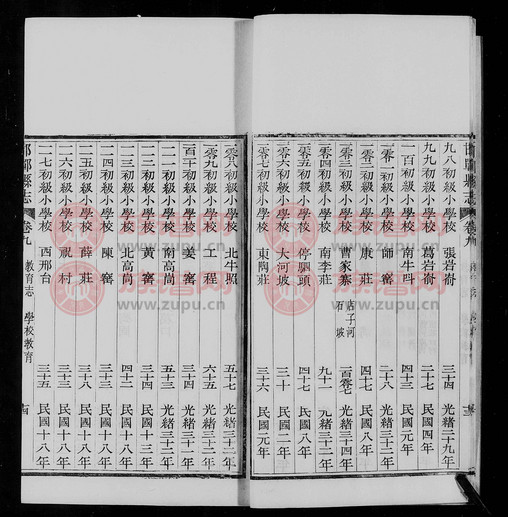 九八初級小學校 張岩嵛 三十四 光緒二十九年
九九初級小學校 葛岩嵛 二十七 民國四年
一百初級小學校 南牛呌 二十四 民國元年
初級小學校 師窰 二十八 光緒三十二年
初級小學校 康莊 四十七 民國八年
零三初級小學校 曹家寨 店子河 石坡 百零七 光緒三十四年
初級小學校 南李莊 九十一 光緒三十二年
初級小學校 停駟頭 五十七 民國八年
初級小學校 大河坡 三十 民國二年
零七初級小學校 東陶莊 三十六 民國元年
零八初級小學校 北牛照 五十七 光緒三十二年
零九初級小學校 工程 六十五 光緒三十二年
百十初級小學校 姜窰 三十四 光緒三十二年
一一初級小學校 南高峝 五十三 光緒三十二年
一二初級小學校 黃窰 三十四 民國十三年
一三初級小學校 北高峝 四十二 民國十八年
一四初級小學校 陳窰 三十三 民國十八年
一五初級小學校 薛莊 三十八 民國十八年
一六初級小學校 祝村 三十三 民國十九年
一七初級小學校 西邢台 三十五 民國十八年
邯鄲縣志 卷九 教育志 學校教育 十四
族譜網
www.zupu.cn